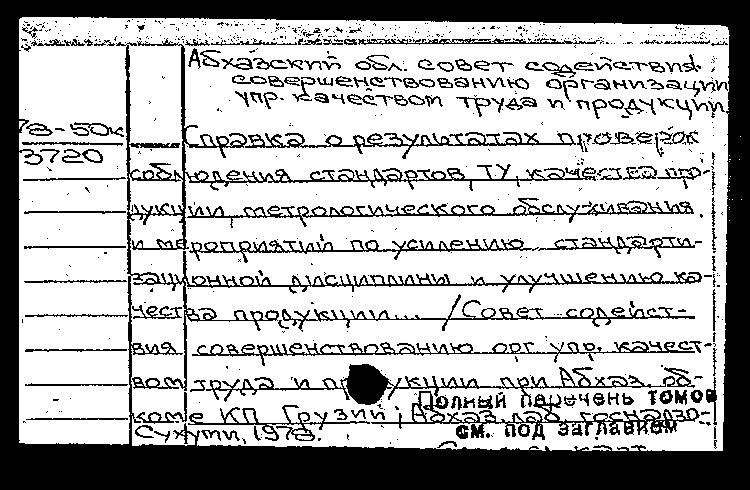 Абхазский обл. совет содействия
совершенствованию организации
упр. качеством труда и продукции
78-50к
3720
Справка о результатах проверок
соблюдения стандартов, ТУ, качества про-
дукции, метрологического обслуживания,
и мероприятий по усилению стандарти-
зационной дисциплины и улучшению ка-
чества продукции... /Совет содейст-
вия совершенствованию орг. упр. качест-
вом труда и пр укции при Абхаз. об-
Полный перечень томов
коме КП Грузии; Абхаз. лаб. госнадзо-
см. под заглавием
Сухуми, 1978.